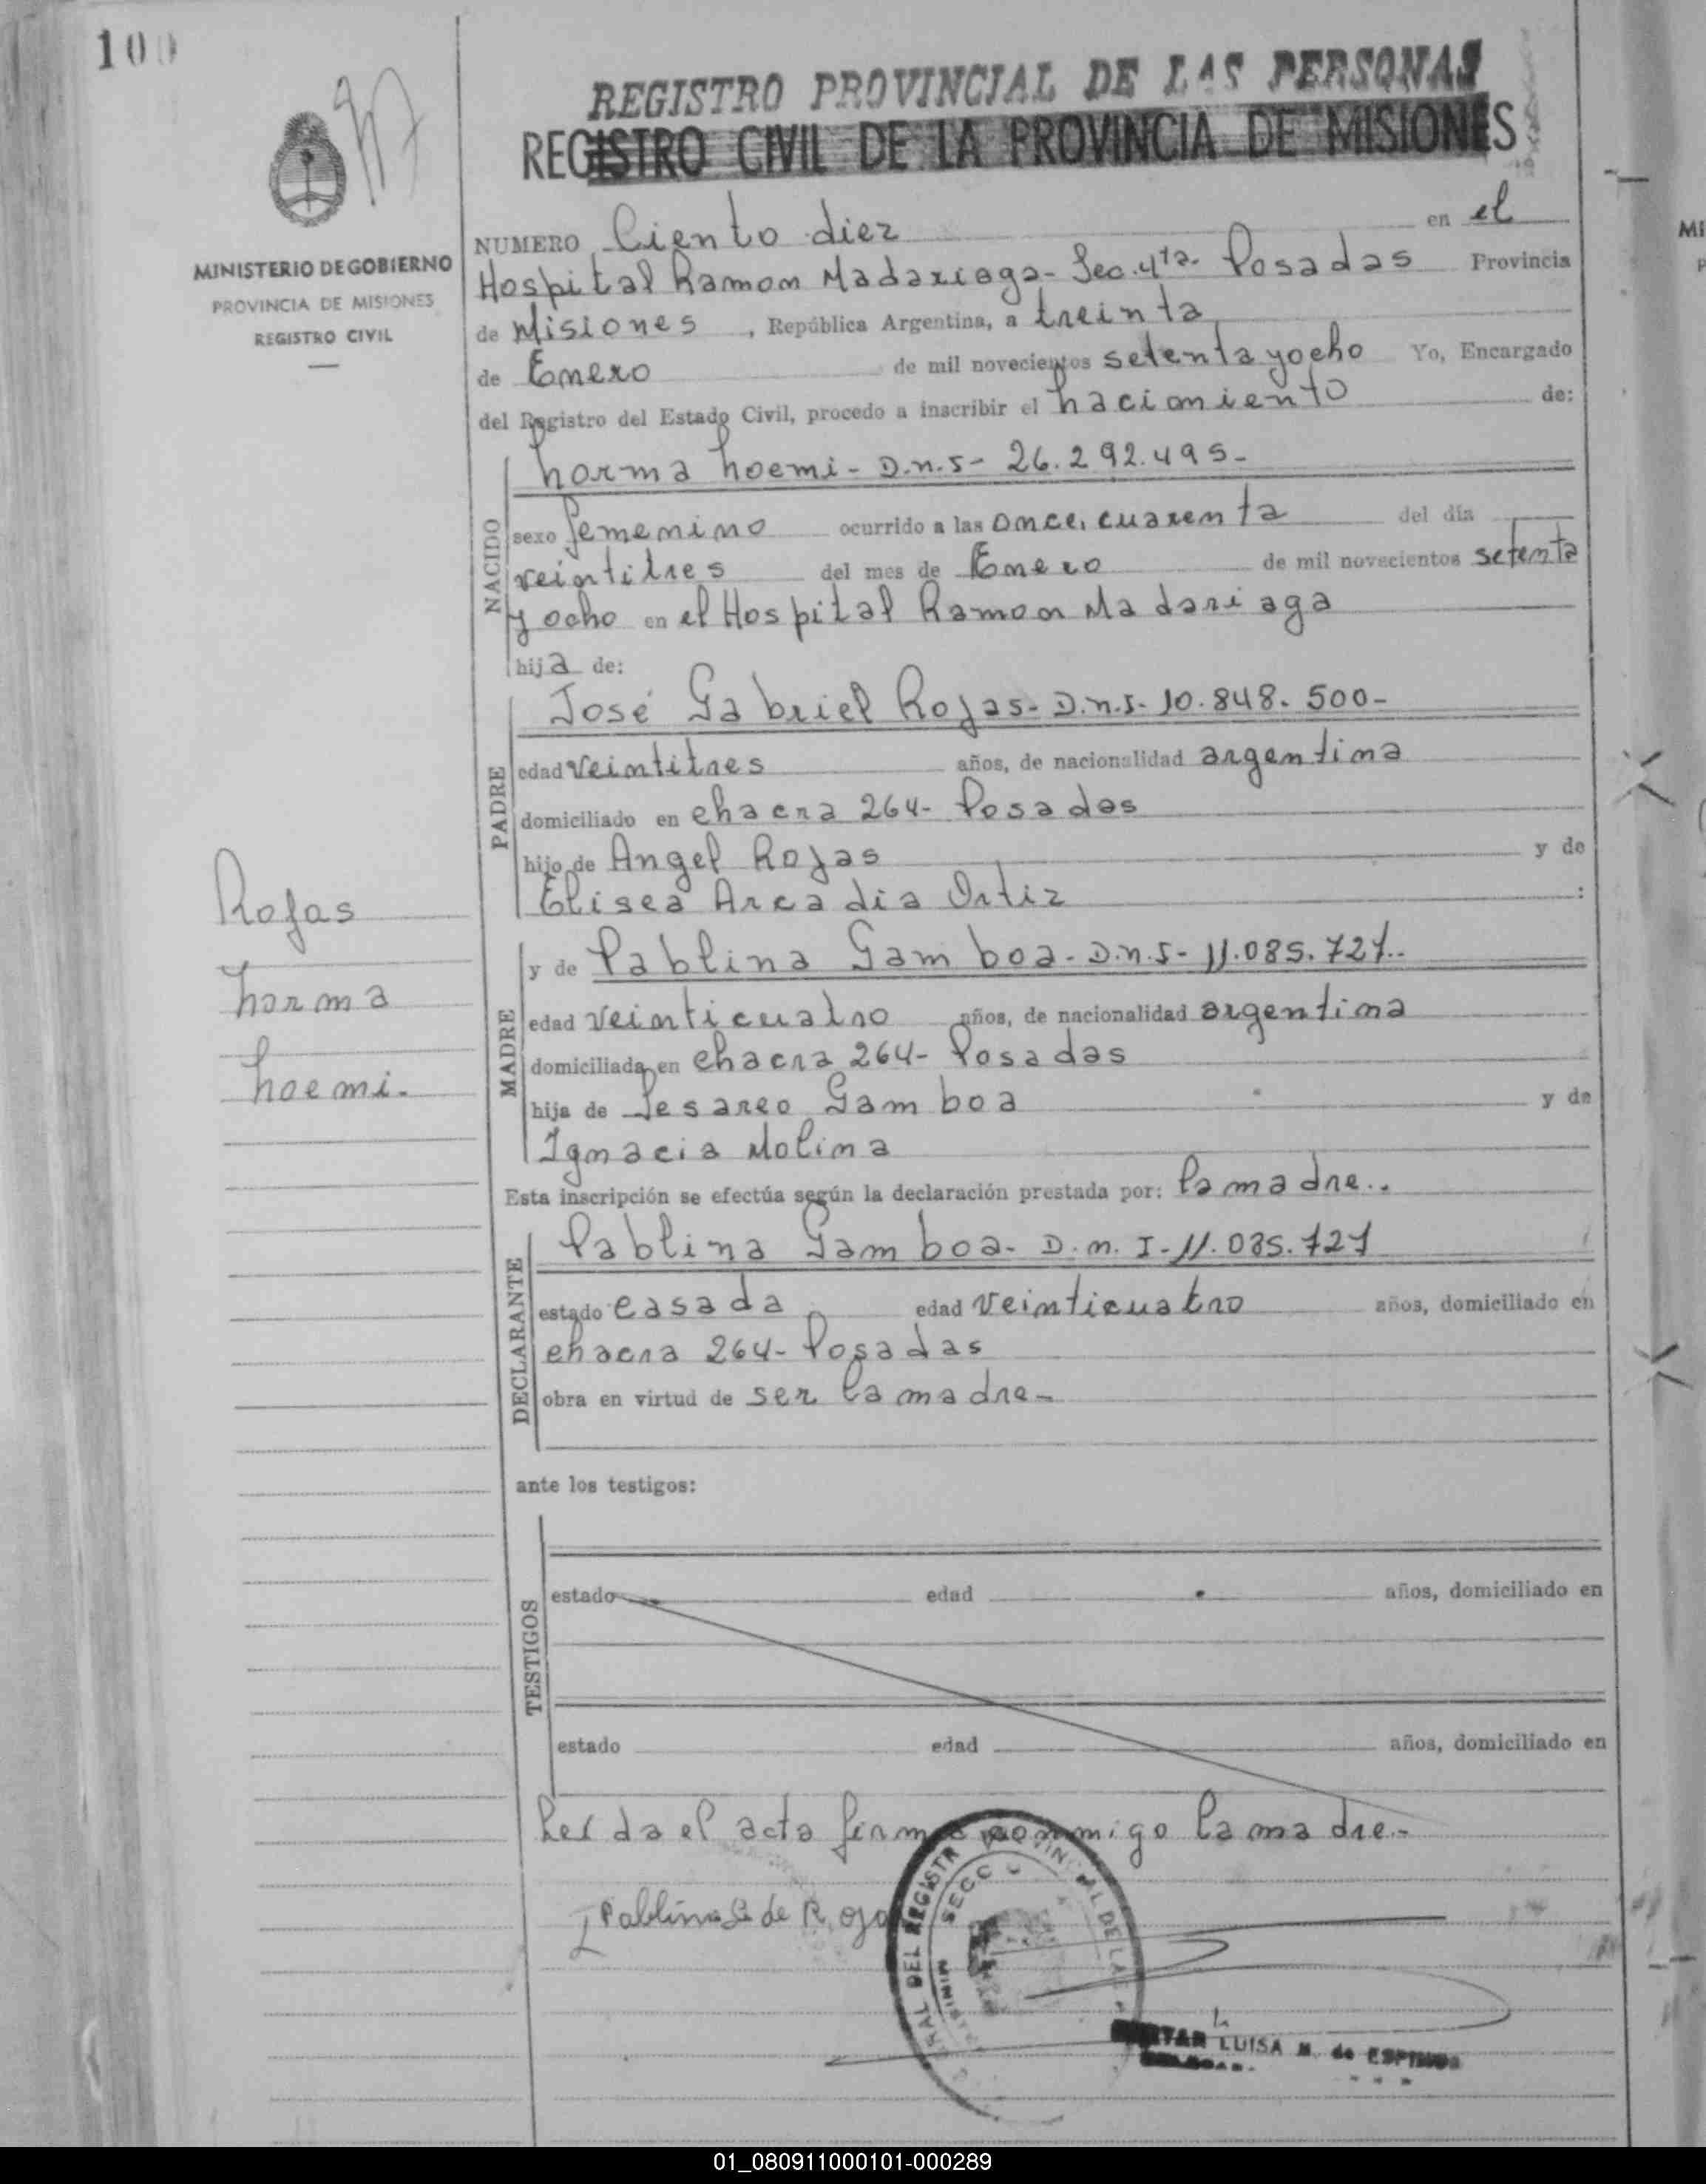 100
REGISTRO PROVINCIAL DE LAS PERSONAS
REGISTRO CIVIL DE LA PROVINCIA DE MISIONES
MINISTERIO DE GOBIERNO
PROVINCIA DE MISIONES
REGISTRO CIVIL
NUMERO Ciento diez en el
Hospital Ramon Madariaga - Sec. 4ta - Posadas Provincia
de Misiones, República Argentina, a treinta
de Enero de mil novecientos setenta y ocho Yo, Encargado
del Registro del Estado Civil, procedo a inscribir el nacimiento de:
NACIDO
Norma Noemi - D.N.I - 26.292.495 -
sexo femenino ocurrido a las once, cuarenta del día
veintitres del mes de Enero de mil novecientos setenta
y ocho en el Hospital Ramon Madariaga
hija de:
PADRE
José Gabriel Rojas - D.N.I - 10.848.500 -
edad veintitres años, de nacionalidad argentina
domiciliado en chacra 264 - Posadas
hijo de Angel Rojas y de
Elisea Arcadia Ortiz :
MADRE
y de Pablina Gamboa - D.N.I - 11.085.727 -
edad veinticuatro años, de nacionalidad argentina
domiciliada en chacra 264 - Posadas
hija de Cesareo Gamboa y de
Ignacia Molina
Rojas
Norma
Noemi.
Esta inscripción se efectúa según la declaración prestada por: la madre..
DECLARANTE
Pablina Gamboa - D.N.I - 11.085.727
estado casada edad veinticuatro años, domiciliado en
chacra 264 - Posadas
obra en virtud de ser la madre -
ante los testigos:
TESTIGOS
estado edad años, domiciliado en
estado edad años, domiciliado en
Leida el acta firma conmigo la madre -
Pablina G de Rojas
LUISA M. de ESPINOSA
01_080911000101-000289